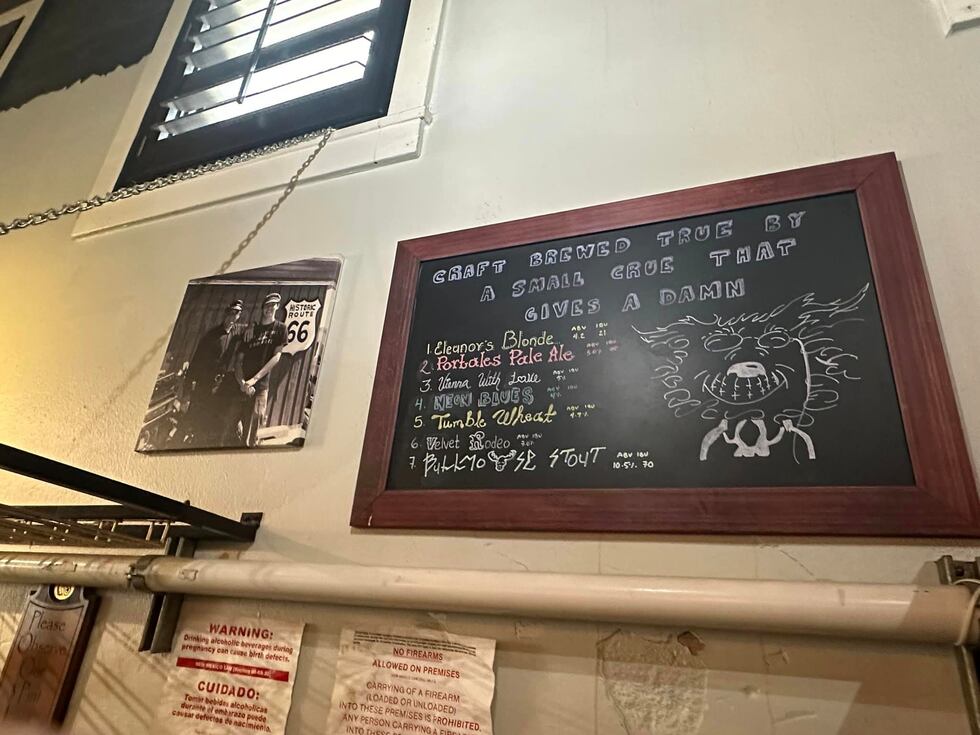 HISTORIC
ROUTE
66
CRAFT BREWED TRUE BY
A SMALL CRUE THAT
GIVES A DAMN
1. Eleanor's Blonde ABV IBU
4.2 21
2. Portales Pale Ale ABV IBU
3. Wanna With Louie ABV IBU
4. NEON BLUES ABV IBU
5. Tumble Wheat ABV IBU
6. Velvet Rodeo ABV IBU
7. BULLMOOSE STOUT ABV IBU
10.5% 70
Please
Observe
Our
WARNING:
Drinking alcoholic beverages during
pregnancy can cause birth defects.
CUIDADO:
Tomar bebidas alcoholicas
durante el embarazo puede
causar defectos de nacimiento.
NO FIREARMS
ALLOWED ON PREMISES
CARRYING OF A FIREARM
(LOADED OR UNLOADED)
INTO THESE PREMISES IS PROHIBITED.
ANY PERSON CARRYING A FIREARM
INTO THESE